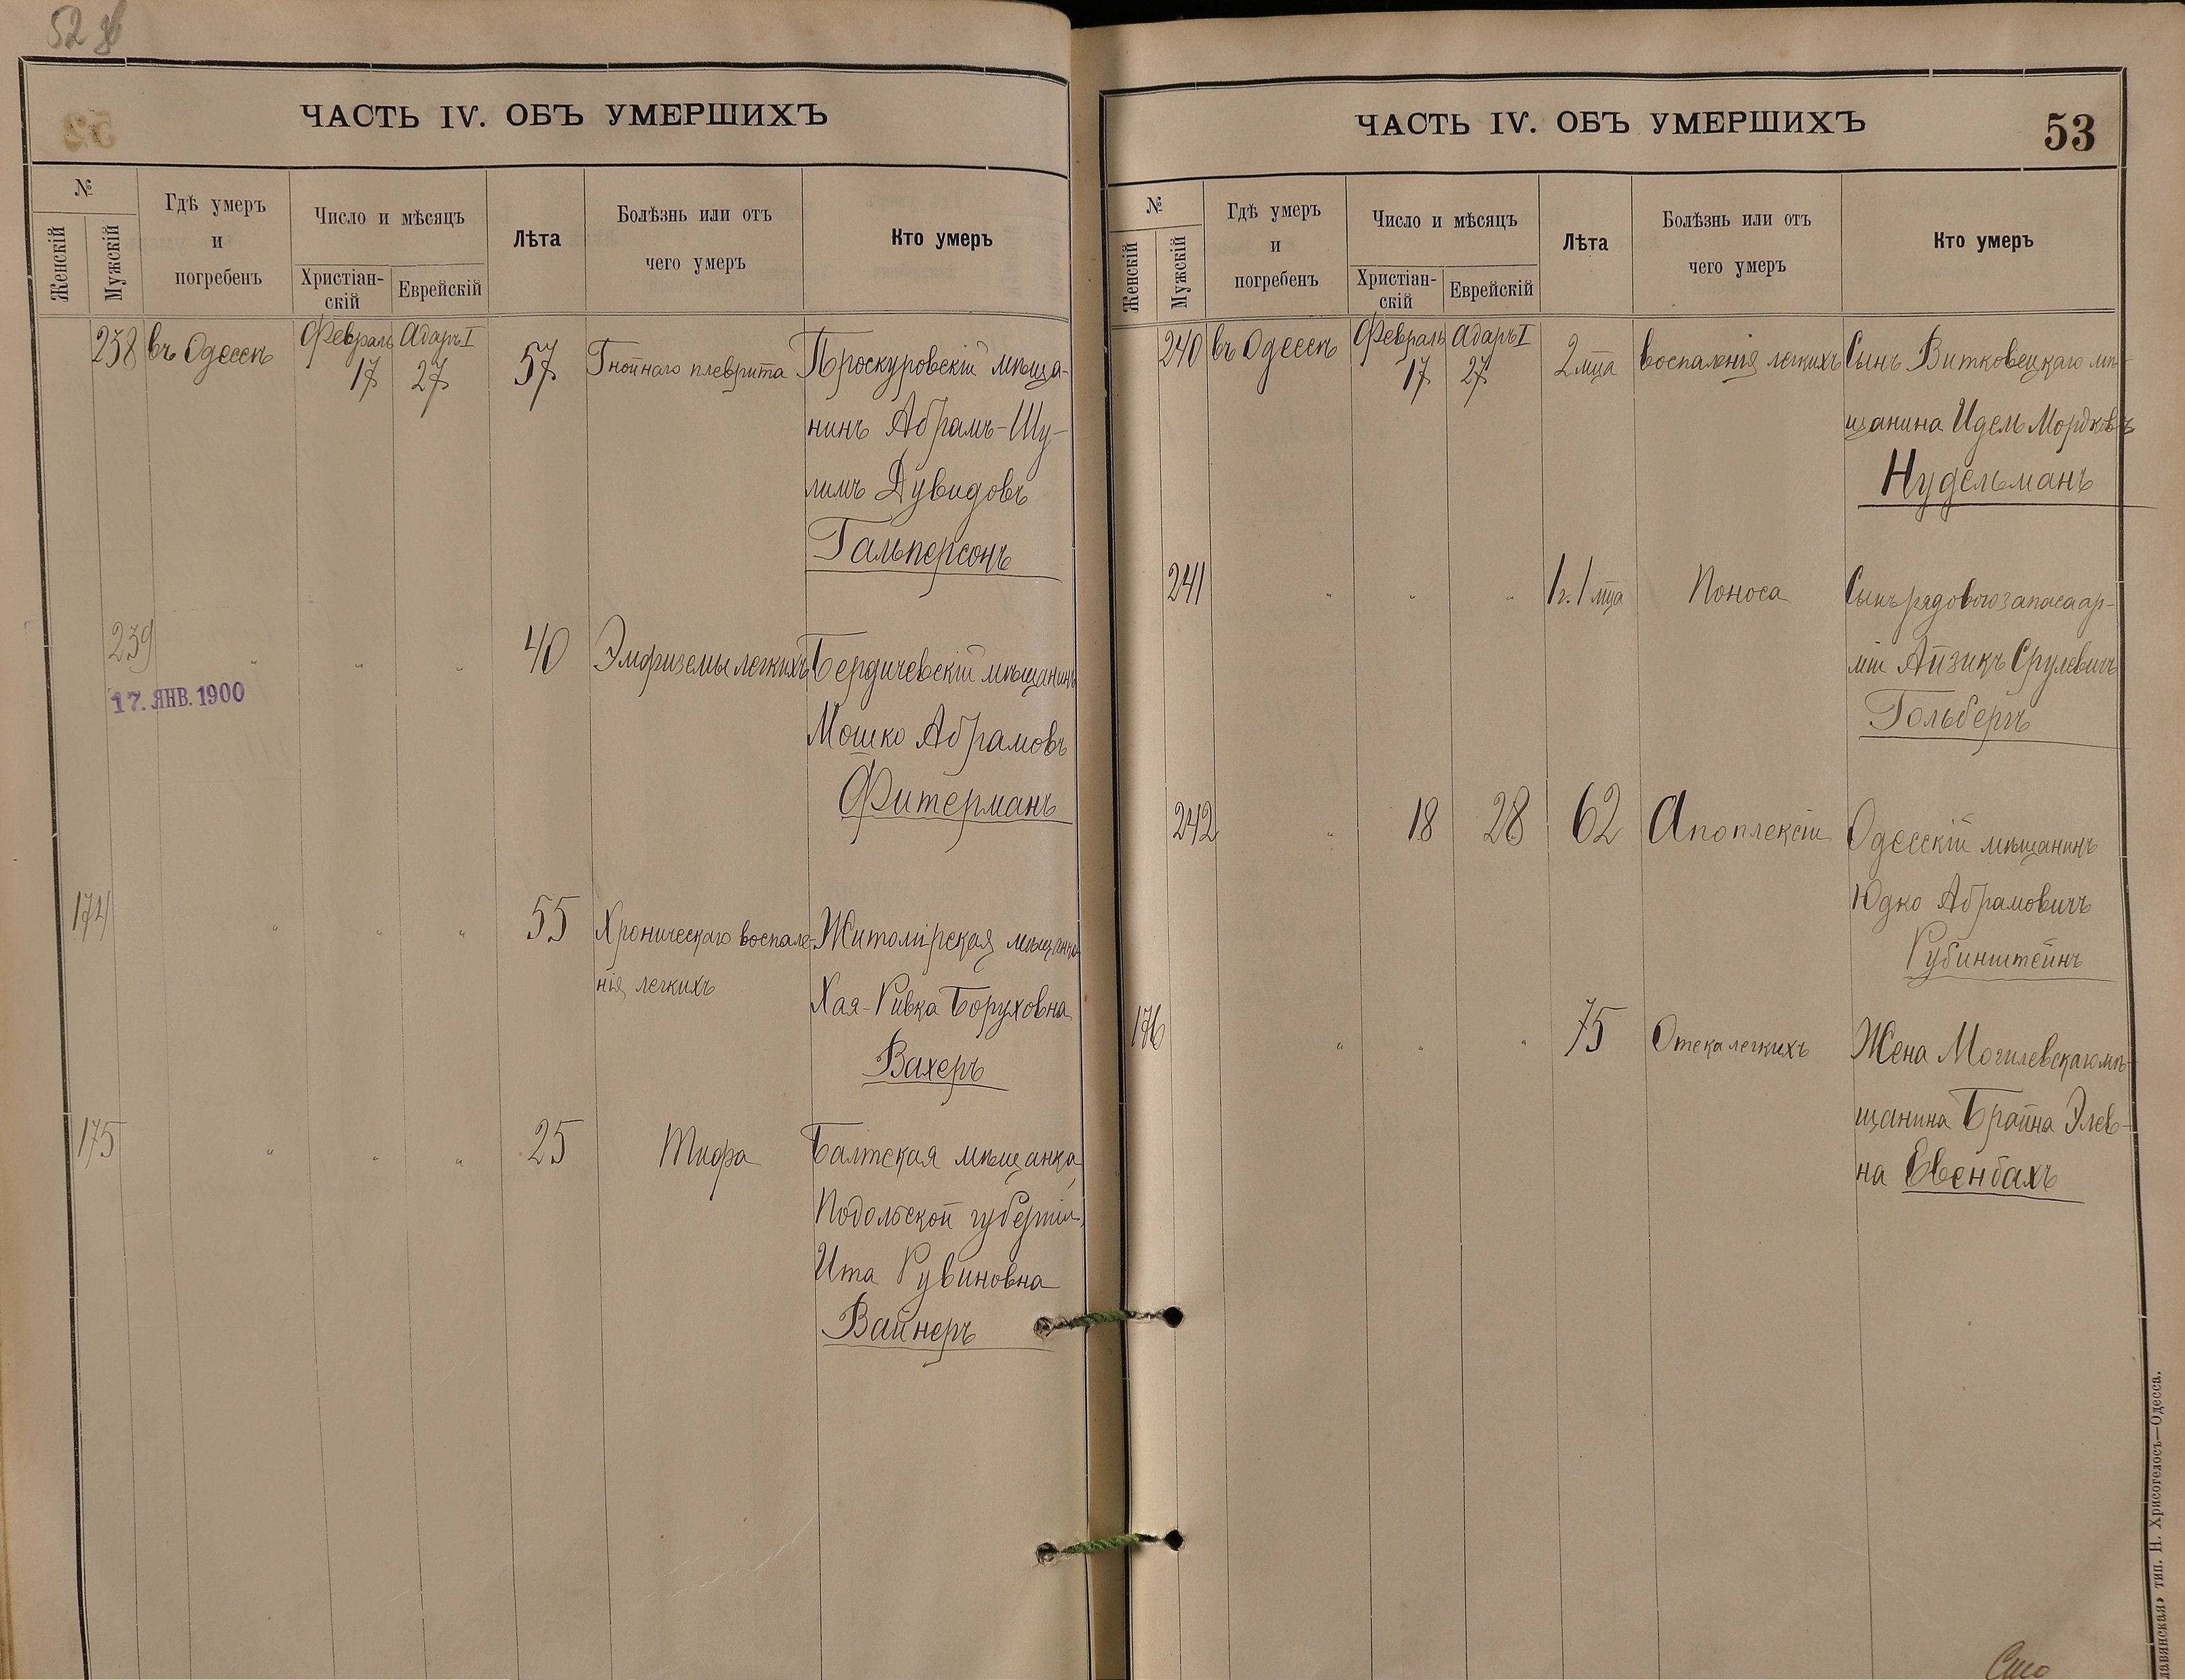 52 об
ЧАСТЬ IV. ОБЪ УМЕРШИХЪ
№
Женскій
Мужскій
Гдѣ умеръ
и
погребенъ
Число и мѣсяцъ
Христіан-
скій
Еврейскій
Лѣта
Болѣзнь или отъ
чего умеръ
Кто умеръ
238 въ Одессѣ Февраль Адаръ I 57 Гнойнаго плеврита Проскуровскій мѣща-
17 27
нинъ Абрамъ-Шу-
лимъ Дувидовъ
Гальперсонъ
239 " " " 40 Эмфиземы легкихъ Бердичевскій мѣщанинъ
17. ЯНВ. 1900
Мошко Абрамовъ
Фитерманъ
174 " " " 55 Хроническаго воспале- Житомірская мѣщанка
нія легкихъ
Хая-Ривка Боруховна
Вахеръ
175 " " " 25 Тифа Балтская мѣщанка
Подольской губерніи
Ита Рувиновна
Вайнеръ
ЧАСТЬ IV. ОБЪ УМЕРШИХЪ
53
№
Женскій
Мужскій
Гдѣ умеръ
и
погребенъ
Число и мѣсяцъ
Христіан-
скій
Еврейскій
Лѣта
Болѣзнь или отъ
чего умеръ
Кто умеръ
240 въ Одессѣ Февраль Адаръ I 2 мца воспаленія легкихъ Сынъ Витковецкаго мѣ-
17 27
щанина Идель Мордковъ
Нудельманъ
241 " " " 1 г. 1 мца Поноса Сынъ рядового запаса ар-
міи Айзикъ Срулевичъ
Гольбергъ
242 " 18 28 62 Апоплексіи Одесскій мѣщанинъ
Юдко Абрамовичъ
Рубинштейнъ
176 " " " 75 Отека легкихъ Жена Могилевскаго мѣ-
щанина Брайна Элев-
на Евенбахъ
Сто
лавянская» тип. Н. Хрисогелосъ—Одесса.